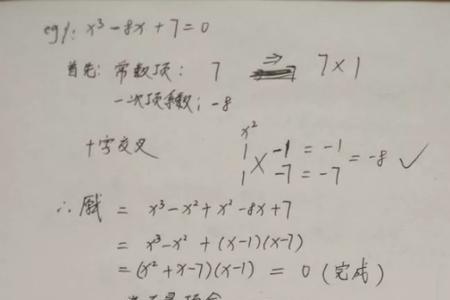 eg1: x³-8x+7=0
首先: 常数项: 7 ⇒ 7×1
一次项系数: -8
x²
十字交叉 1 -1 = -1
× = -8 ✓
1 -7 = -7
∴ 原式 = x³-x²+x²-8x+7
= x³-x²+(x-1)(x-7)
= (x²+x-7)(x-1) = 0 (完成)